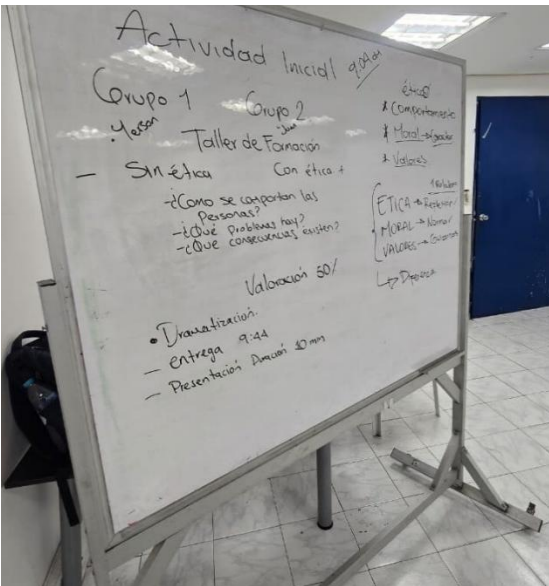 Actividad Inicial 9:04 am
Grupo 1
Grupo 2
• Yerson
Taller de Formación
— Sin ética
Con ética +
- ¿Como se comportan las
Personas?
- ¿Qué Problemas hay?
- ¿Qué consecuencias existen?
Valoración 50/
• Dramatización.
— entrega 9:44
— Presentación Duración 10 min
ética
* Comportamiento
* Moral
* Valores
ETICA → Reflexión
MORAL → Norma
VALORES →